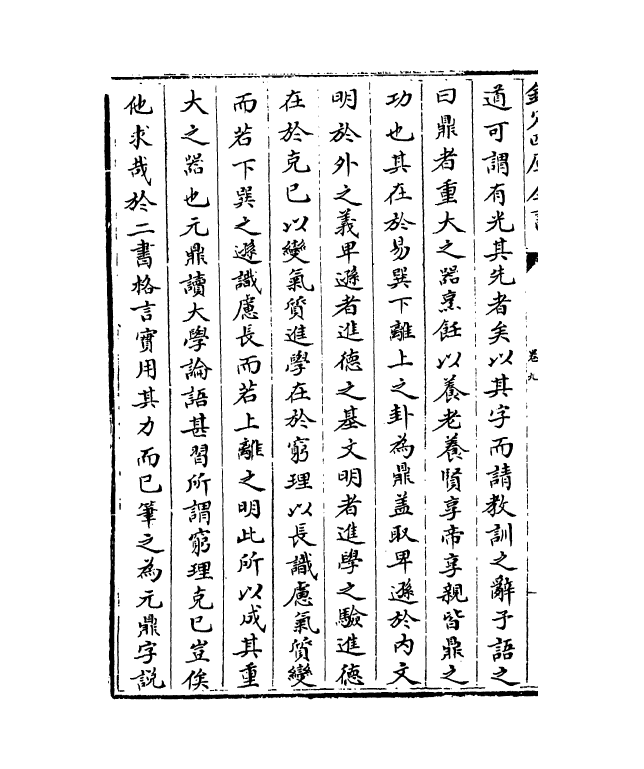 欽定四庫全書
卷九
道可謂有光其先者矣以其字而請教訓之辭予語之
曰鼎者重大之器烹飪以養老養賢享帝享親皆鼎之
功也其在於易巽下離上之卦為鼎蓋取卑遜於内文
明於外之義卑遜者進德之基文明者進學之驗進德
在於克已以變氣質進學在於窮理以長識慮氣質變
而若下巽之遜識慮長而若上離之明此所以成其重
大之器也元鼎讀大學論語甚習所謂窮理克已豈俟
他求哉於二書格言實用其力而已筆之為元鼎字説